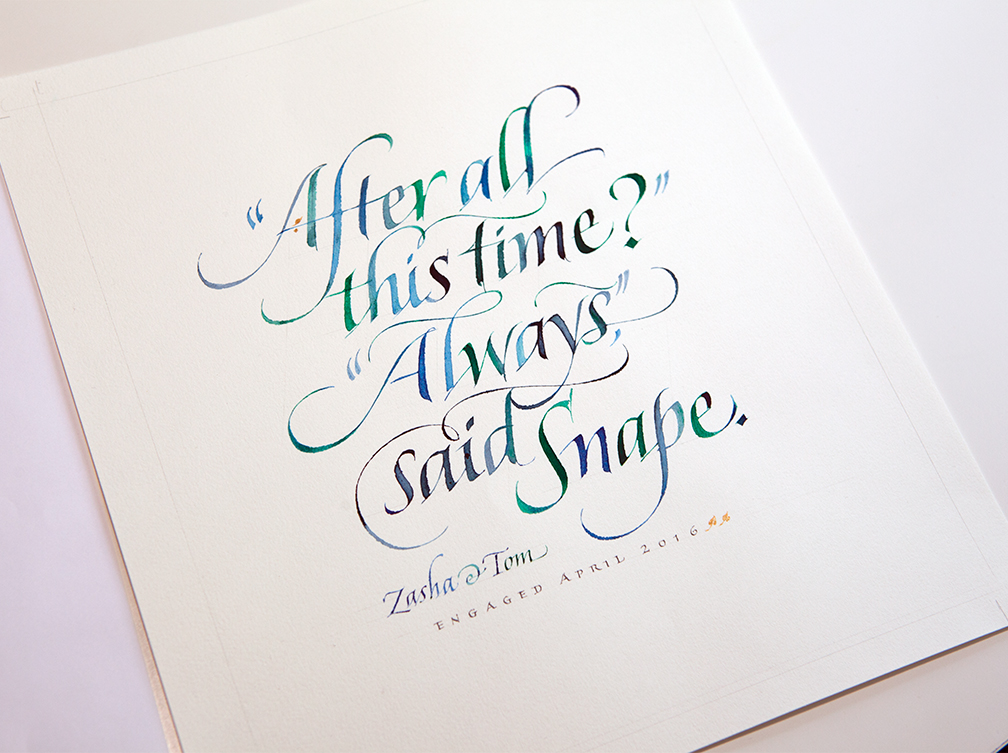 “After all
this time?”
“Always,”
said Snape.
Zasha & Tom
ENGAGED APRIL 2016